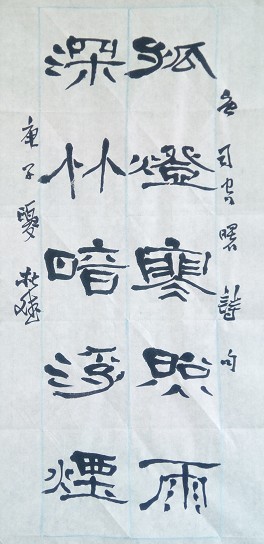 司空曙詩句
孤燈寒照雨
深竹暗浮煙
庚子夏